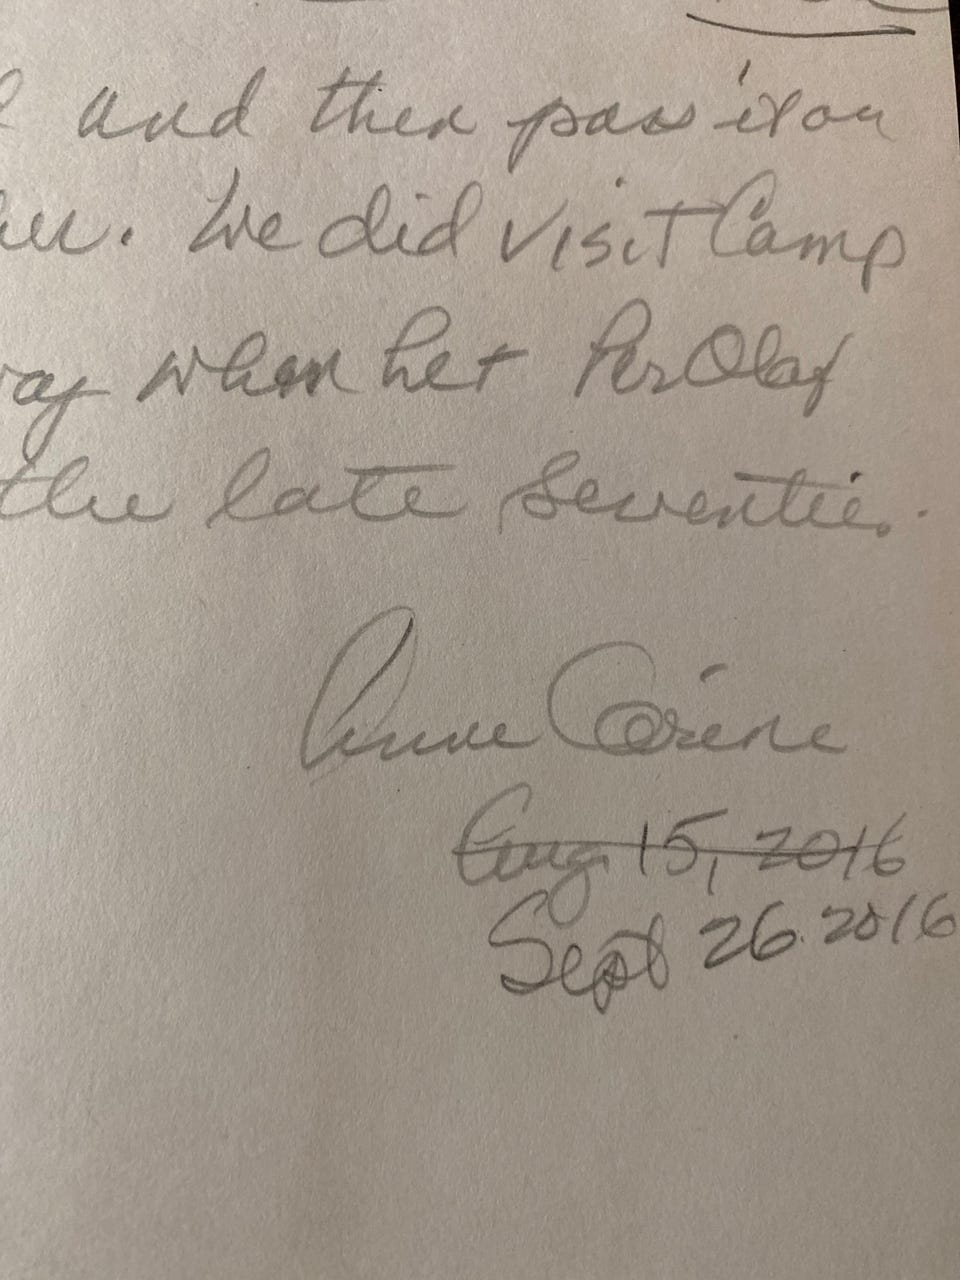 and then pass it on
. We did visit Camp
when het Per Olaf
the late seventie.
Anne Corine
Aug 15, 2016
Sept 26. 2016